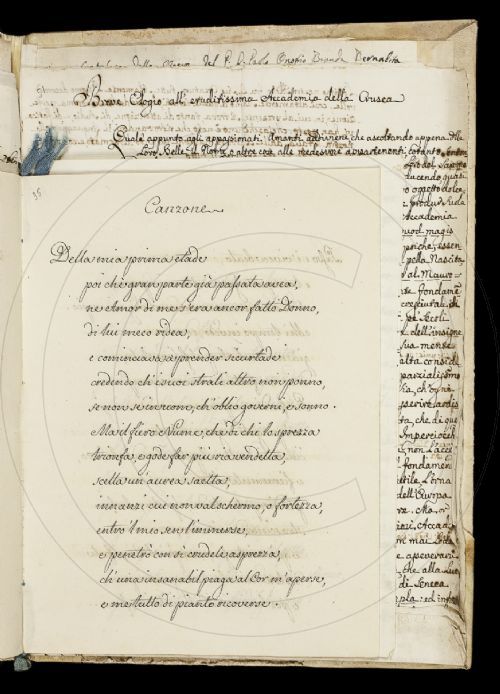 della del P. D. Paolo Onofrio Branda Bernabita
Breve Elogio all'eruditissima Accademia della Crusca
Quale appunto agli appasionati Amanti addiviene che ascoltando appena Alle
Loro Belle il Nome, o altre cose alle medesime appartenenti
36
Canzone
Della mia prima etade
poi chè gran parte già passata avea,
ne Amor di me s'era ancor fatto Donno,
di lui meco ridea,
e cominciava à prender securtade
credendo ch'i suoi strali altro non ponno,
se non se in cuore, ch'oblio governi, e sonno.
Ma il fiero Nume, che di chi lo sprezza
trionfa, e gode far più ria vendetta,
scelta un'aurea saetta,
innanzi cui non val schermo, o fortezza,
entro 'l mio sen l'immerse,
e penetrò con sì crudele asprezza,
ch'una insanabil piaga al Cor m'aperse,
e me tutto di pianto ricoverse.
ducendo quasi
Accademia
quod magis
della Nascita
al Mauro-
dell'insigne
sua mente
alta conside
parzialissimo
ta, che di que
Imperciocch
non l'acce
fondamen
dell'Europa
rz. Ma, o
m mai
e aseverarvi
che alla Luc
di Seneca